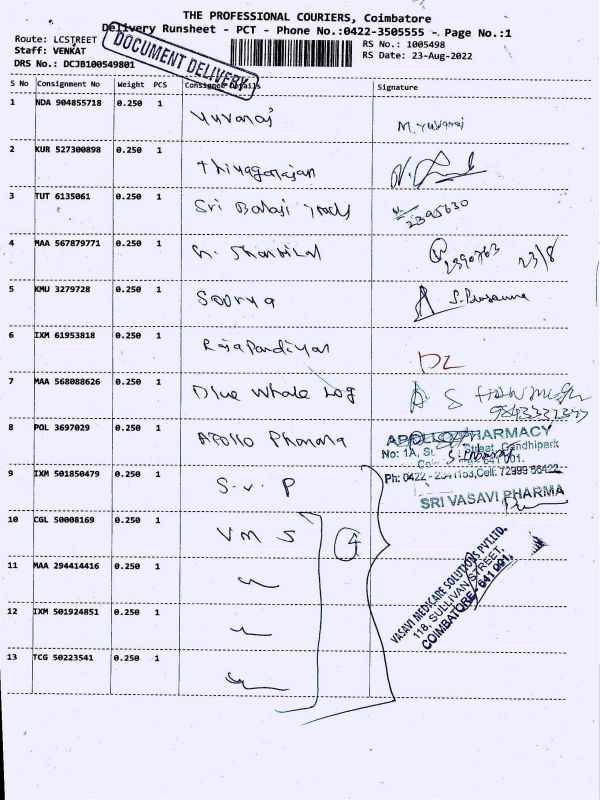 THE PROFESSIONAL COURIERS, Coimbatore
Delivery Runsheet - PCT - Phone No.:0422-3505555 - Page No.:1
Route: LCSTREET
RS No.: 1005498
Staff: VENKAT
RS Date: 23-Aug-2022
DRS No.: DCJB100549801
DOCUMENT DELIVERY
S No Consignment No Weight PCS Consignee Details Signature
1 NDA 904855718 0.250 1 Yuvaraj M. Yuvaraj
2 KUR 527300898 0.250 1 Thiyagarajan
3 TUT 6135061 0.250 1 Sri Balaji 2395630
4 MAA 567879771 0.250 1 2390763 23/8
5 KMU 3279728 0.250 1 Soorya S. Prasanna
6 IXM 61953818 0.250 1 Rajapandiyan
7 MAA 568088626 0.250 1 Blue Whale Log
8 POL 3697029 0.250 1 Apollo
APOLLO PHARMACY
No: 1A, Street, Gandhipark
641 001.
Ph: 0422 - Cell: 72999 56422
9 IXM 501850479 0.250 1 S.V.P
SRI VASAVI PHARMA
10 CGL 50008169 0.250 1 VMS 4
11 MAA 294414416 0.250 1
12 IXM 501924851 0.250 1
13 TCG 50223541 0.250 1
VASAVI MEDICARE SOLUTIONS PVT.LTD.
118, SULLIVAN STREET,
COIMBATORE - 641 001.